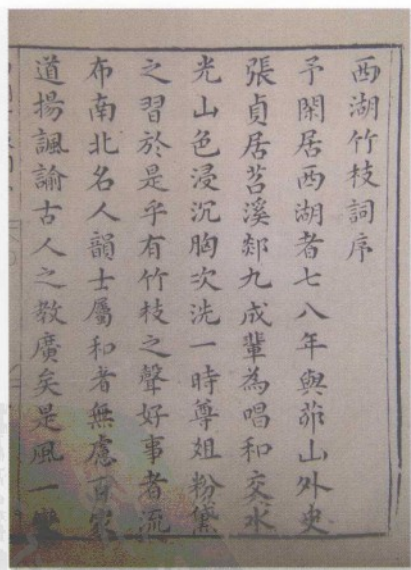 西湖竹枝詞序
予閑居西湖者七八年與茆山外史
張貞居苕溪郯九成軰為唱和交水
光山色浸沉胸次洗一時尊俎粉黛
之習於是乎有竹枝之聲好事者流
布南北名人韻士屬和者無慮百家
道揚諷諭古人之教廣矣是風一變